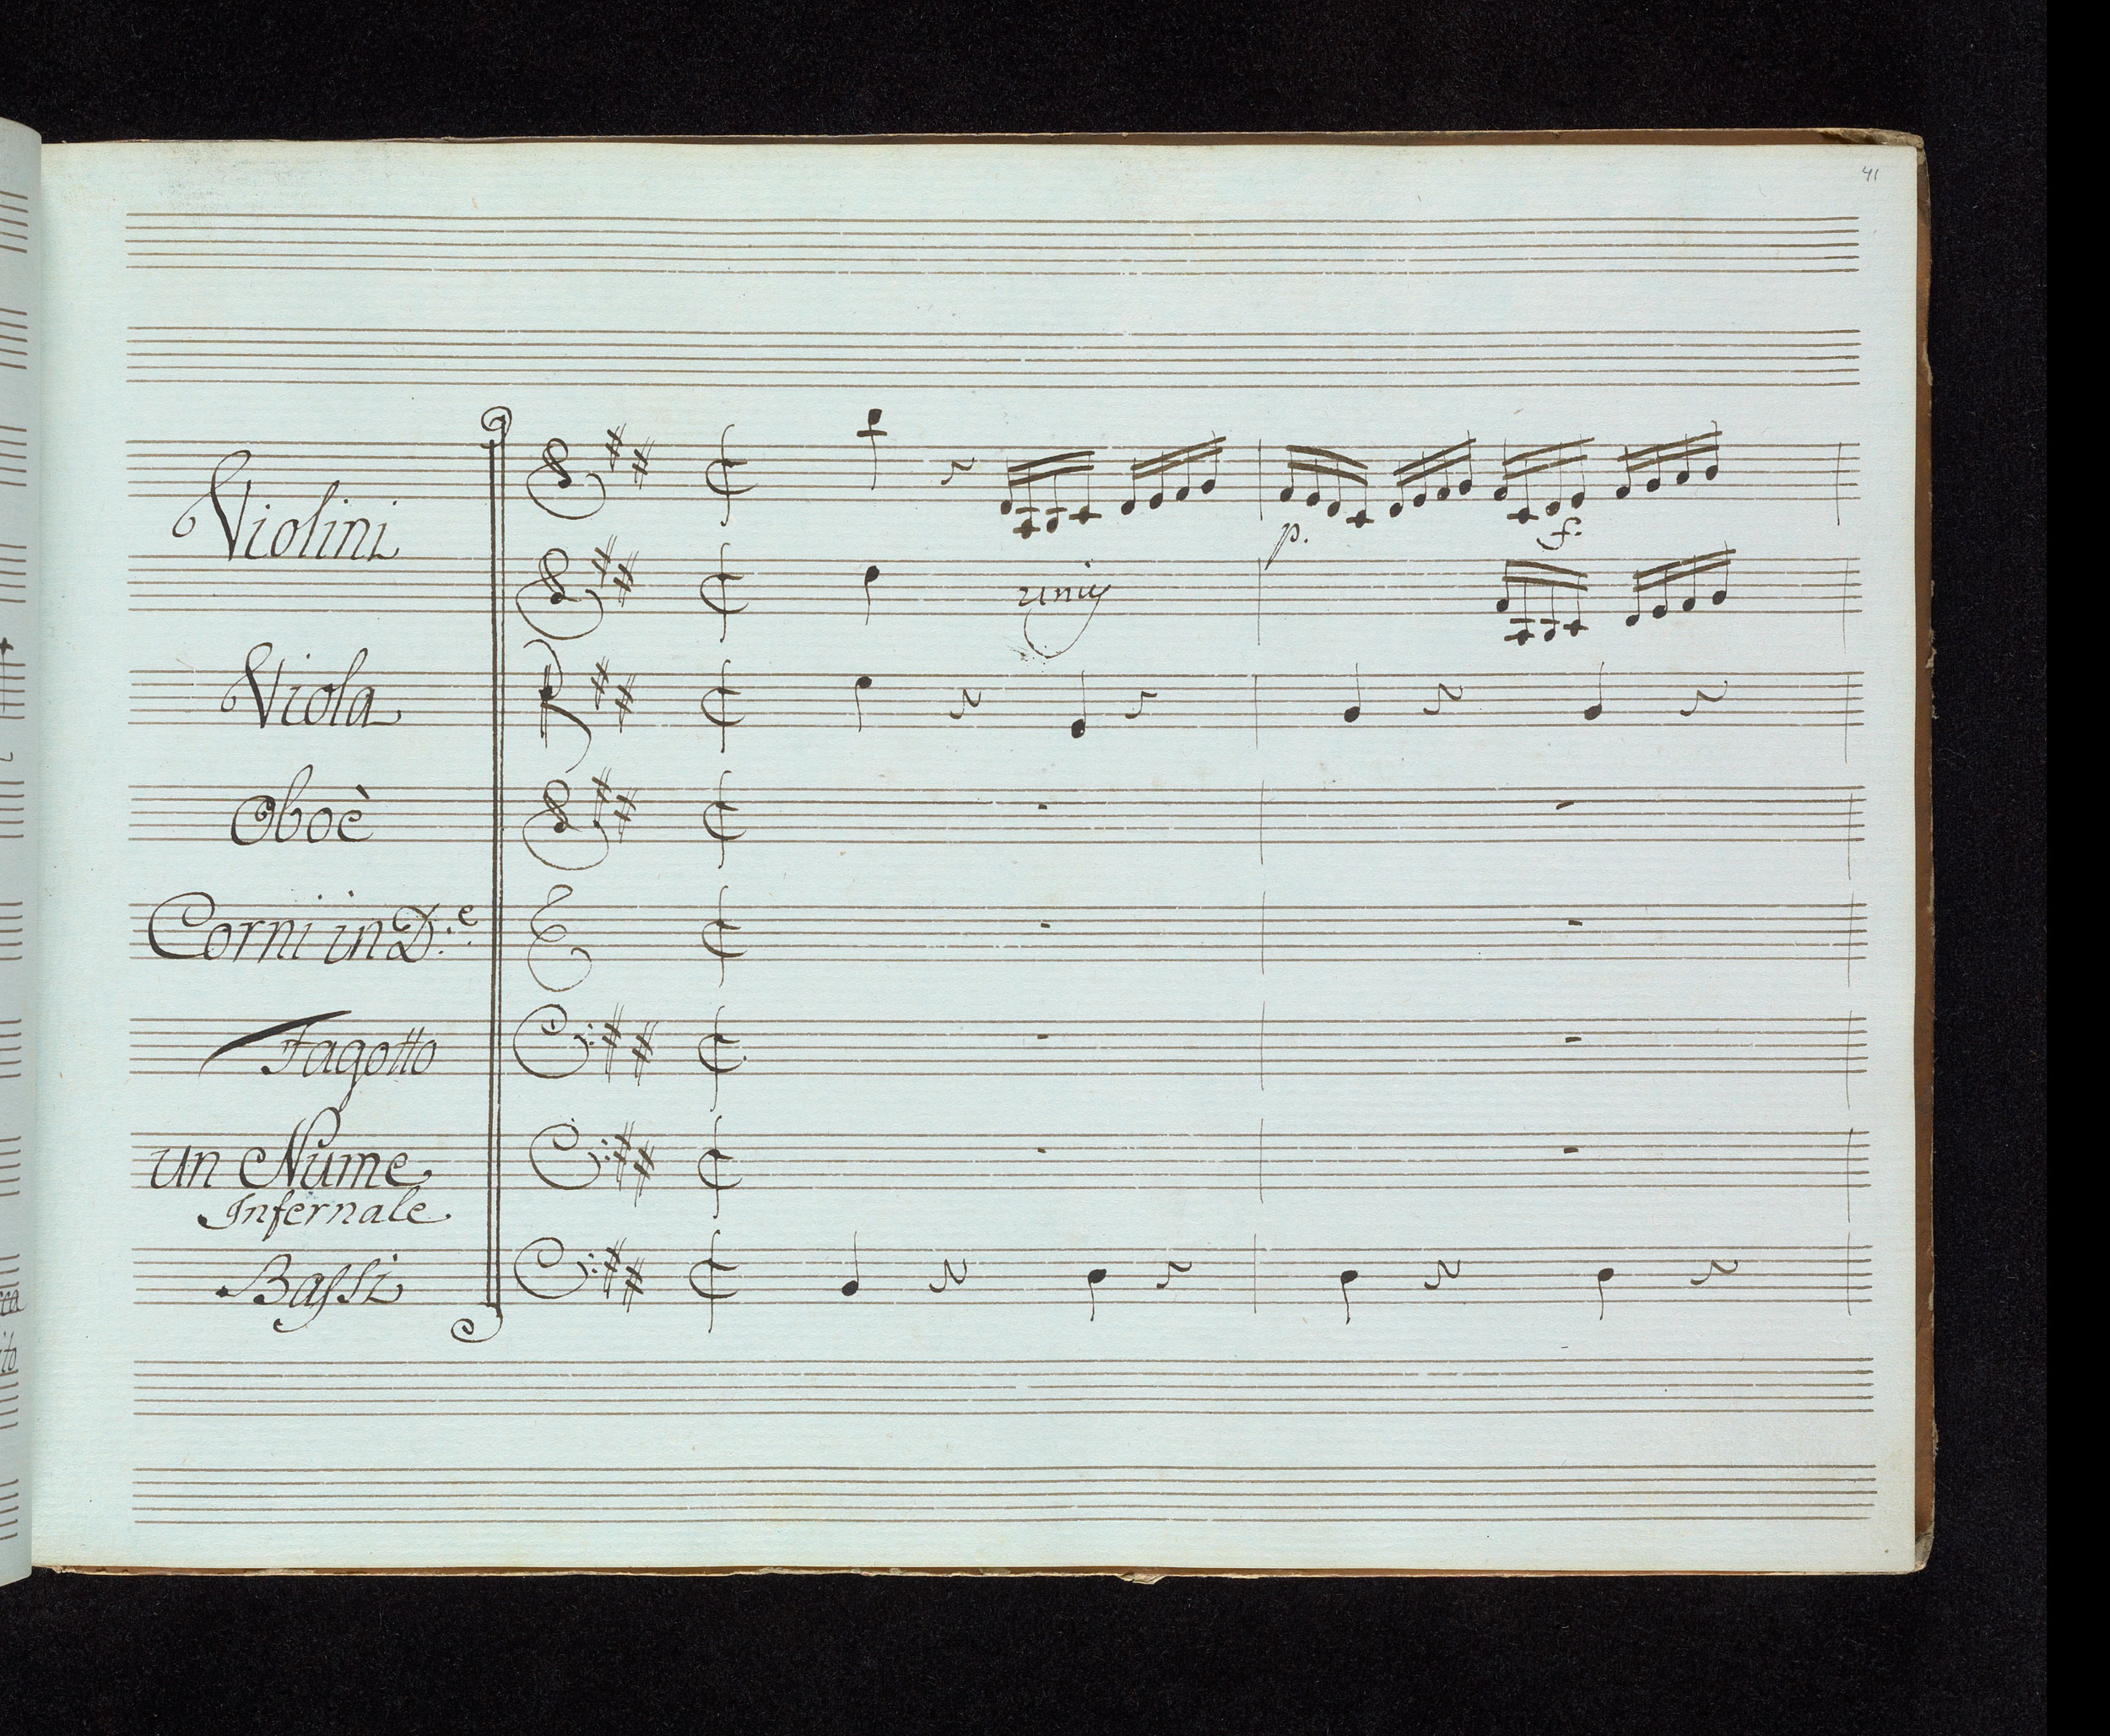 41
Violini
p.
f.
unis
Viola
Oboè
Corni in D.e
Fagotto
un Nume
Infernale
Bassi